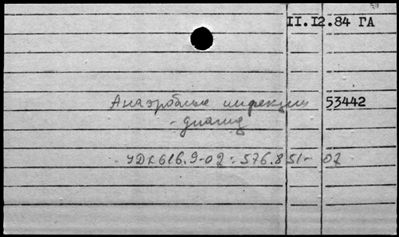 II.I2.84 ГА
Анаэробные инфекции 53442
УДК 616.9-02:576.851-02